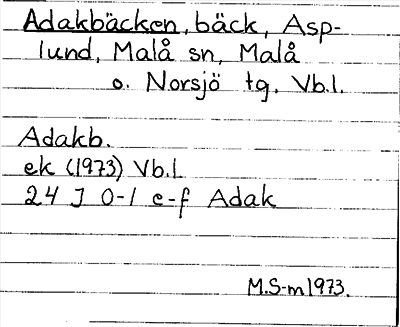 Adakbäcken, bäck, Asp-
lund, Malå sn, Malå
o. Norsjö tg, Vb.l.
Adakb.
ek (1973) Vb.l
24 J 0-1 e-f Adak
M.S-m 1973.